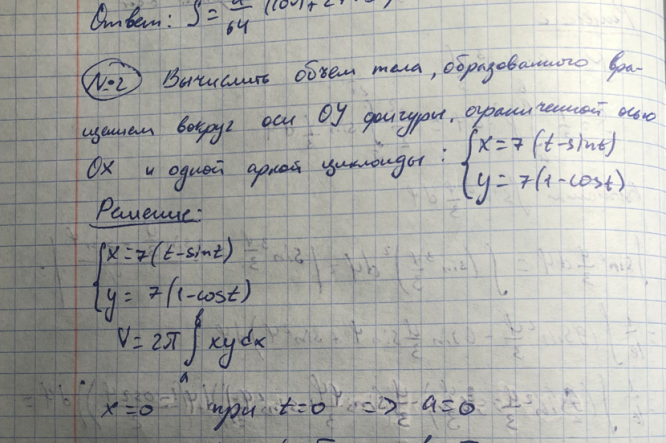 Ответ: S = π/64 (
№2 Вычислить объем тела, образованного вра-
щением вокруг оси ОУ фигуры, ограниченной осью
ОХ и одной аркой циклоиды: { x = 7(t-sint)
y = 7(1-cost)
Решение:
{ x = 7(t-sint)
y = 7(1-cost)
V = 2π ∫ₐᵇ xydx
x=0 при t=0 => a=0